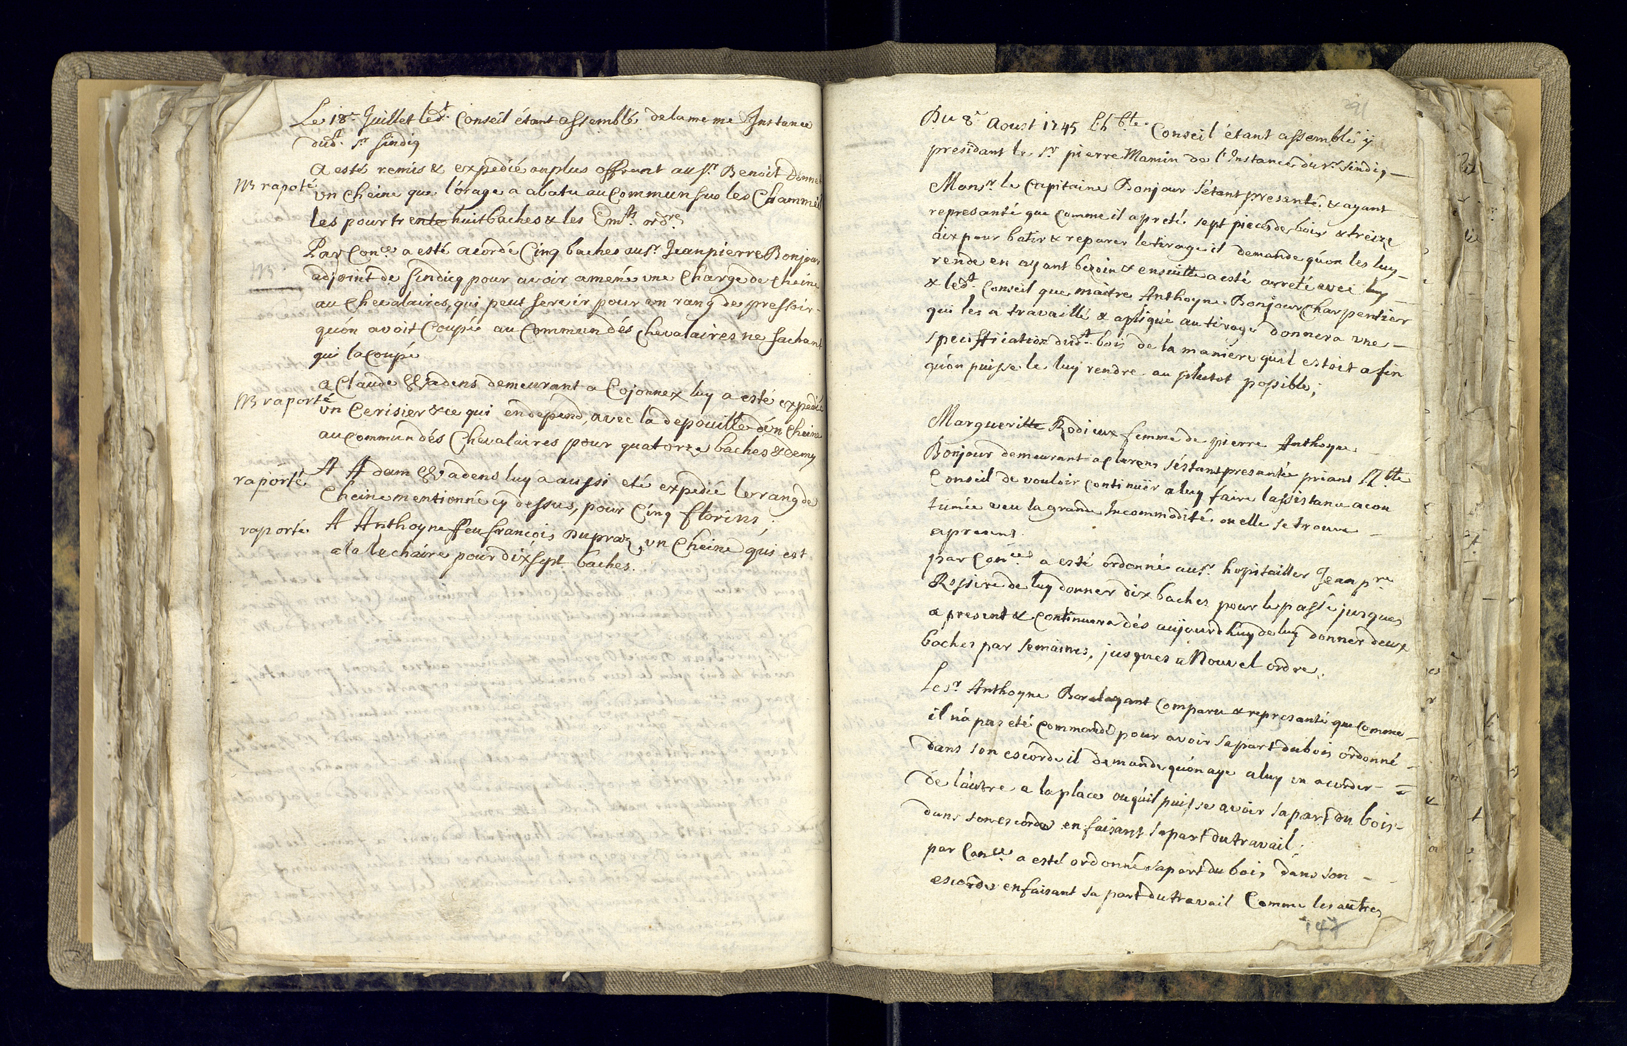 Le 18e. Juillet ledt. Conseil étant assemblé de la meme Instance
dudt. Sr. sindiq
A esté remis & expedié au plus offrant au Sr. Benoit Donnet
un Cheine que l'orage a abatu au Commun sur les Chammil
les pour trente huit baches & les Emts. ordres
NB raporté
Par Conce. a esté acordé Cinq baches au Sr. Jean pierre Bonjour
adjoint de sindicq pour avoir amené une Charge de Cheine
au Chevalaires, qui peut servir pour un rang de pressoir
qu'on avoit Coupée au Commun dés Chevalaires ne sachant
qui la coupé
NB
A Claude Vadens demeurant a Cojonnex luy a esté expedié
un Cerisier & ce qui en depend, avec la depouille d'un Cheine
au Commun dés Chevalaires pour quatorze baches & demy
NB raporté
A Adam Vadens luy a aussi eté expedié le rang de
Cheine mentionné cy dessus, pour Cinq florins ;
raporté
A Anthoyne ffeu francois Dupraz, un Cheine qui est
a la lechaire pour dix sept baches.
raporté
91
Du 8e. Aoust 1745 Lhble. Conseil étant assemblé y
presidant le Sr. pierre Mamin de l'Instance du Sr. sindiq
Monsr. le Capitaine Bonjour s'étant presenté & ayant
represanté que comme il a preté sept pieces de bois & treize
aix pour batir & reparer le tirage il demande quon les luy
rende en ayant bezoin & ensuitte a esté arreté avec luy
& ledt. Conseil que maitre Anthoyne Bonjour Charpentier
qui les a travaillé & apliqué au tirage donnera une
speciffication dudt. bois de la maniere quil estoit afin
qu'on puisse le luy rendre au plutot possible ;
Margueritte Rodieux femme de pierre Anthoyne
Bonjour demeurant a Clarens s'éstant presantée priant Llble
Conseil de vouloir Continuër a luy faire lassistance acou
tumée veu la grande Incommodité ou elle se trouve
apresent
par Conce. a esté ordonné au Sr. hospitailler Jean pre
Rossire de luy donner dix baches pour le passé jusques
a present & Continuera dés aujourdhuy de luy donner deux
baches par semaines, jusques a Nouvel ordre.
Le Sr. Anthoyne Borel ayant Comparu & represanté que Comme
il n'a pas eté Commandé pour avoir sa part du bois ordonné
dans son escorde il demande qu'on aye a luy en acorder
de l'autre a la place ou qu'il puisse avoir sa part du bois
dans son escorde en faisant sa part du travail.
par Conce. a esté ordonné sa part du bois dans son
escorde en faisant sa part du travail Comme les autres
147